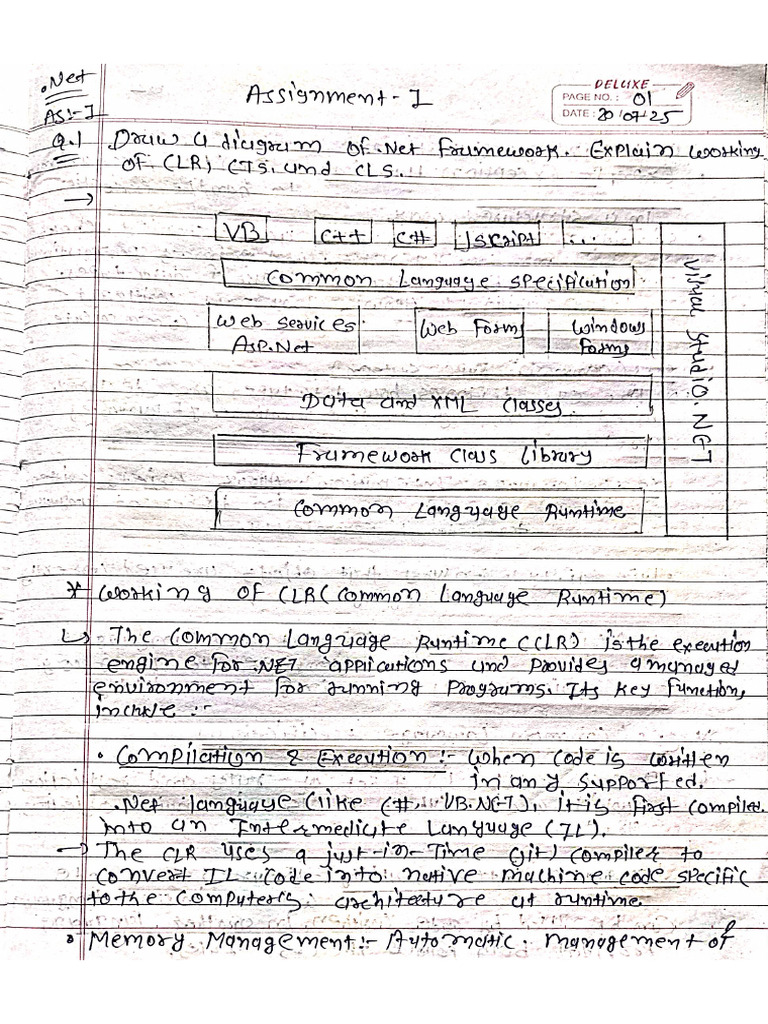 .Net
AS:-I
Assignment - I
DELUXE
PAGE NO.: 01
DATE: 20/07/25
Q.1 Draw a diagram of .Net framework. Explain working
of CLR, CTS. and CLS.
→
VB C++ C# JSCRIPT ...
Common Language Specification
Web Services Web Forms Windows
ASP.Net Forms
Data and XML Classes
Framework Class Library
Common Language Runtime
Visual Studio.NET
* Working of CLR (Common Language Runtime)
↳ The Common Language Runtime (CLR) is the execution
engine for .NET applications and provides a managed
environment for running programs. Its key function,
include :-
• Compilation & Execution :- When code is written
in any supported.
.Net language (like C#, VB.NET), it is first compiled
into an Intermediate Language (IL).
→ The CLR uses a just-in-Time (jit) compiler to
convert IL code into native machine code specific
to the computer's architecture at runtime.
• Memory Management :- Automatic. management of